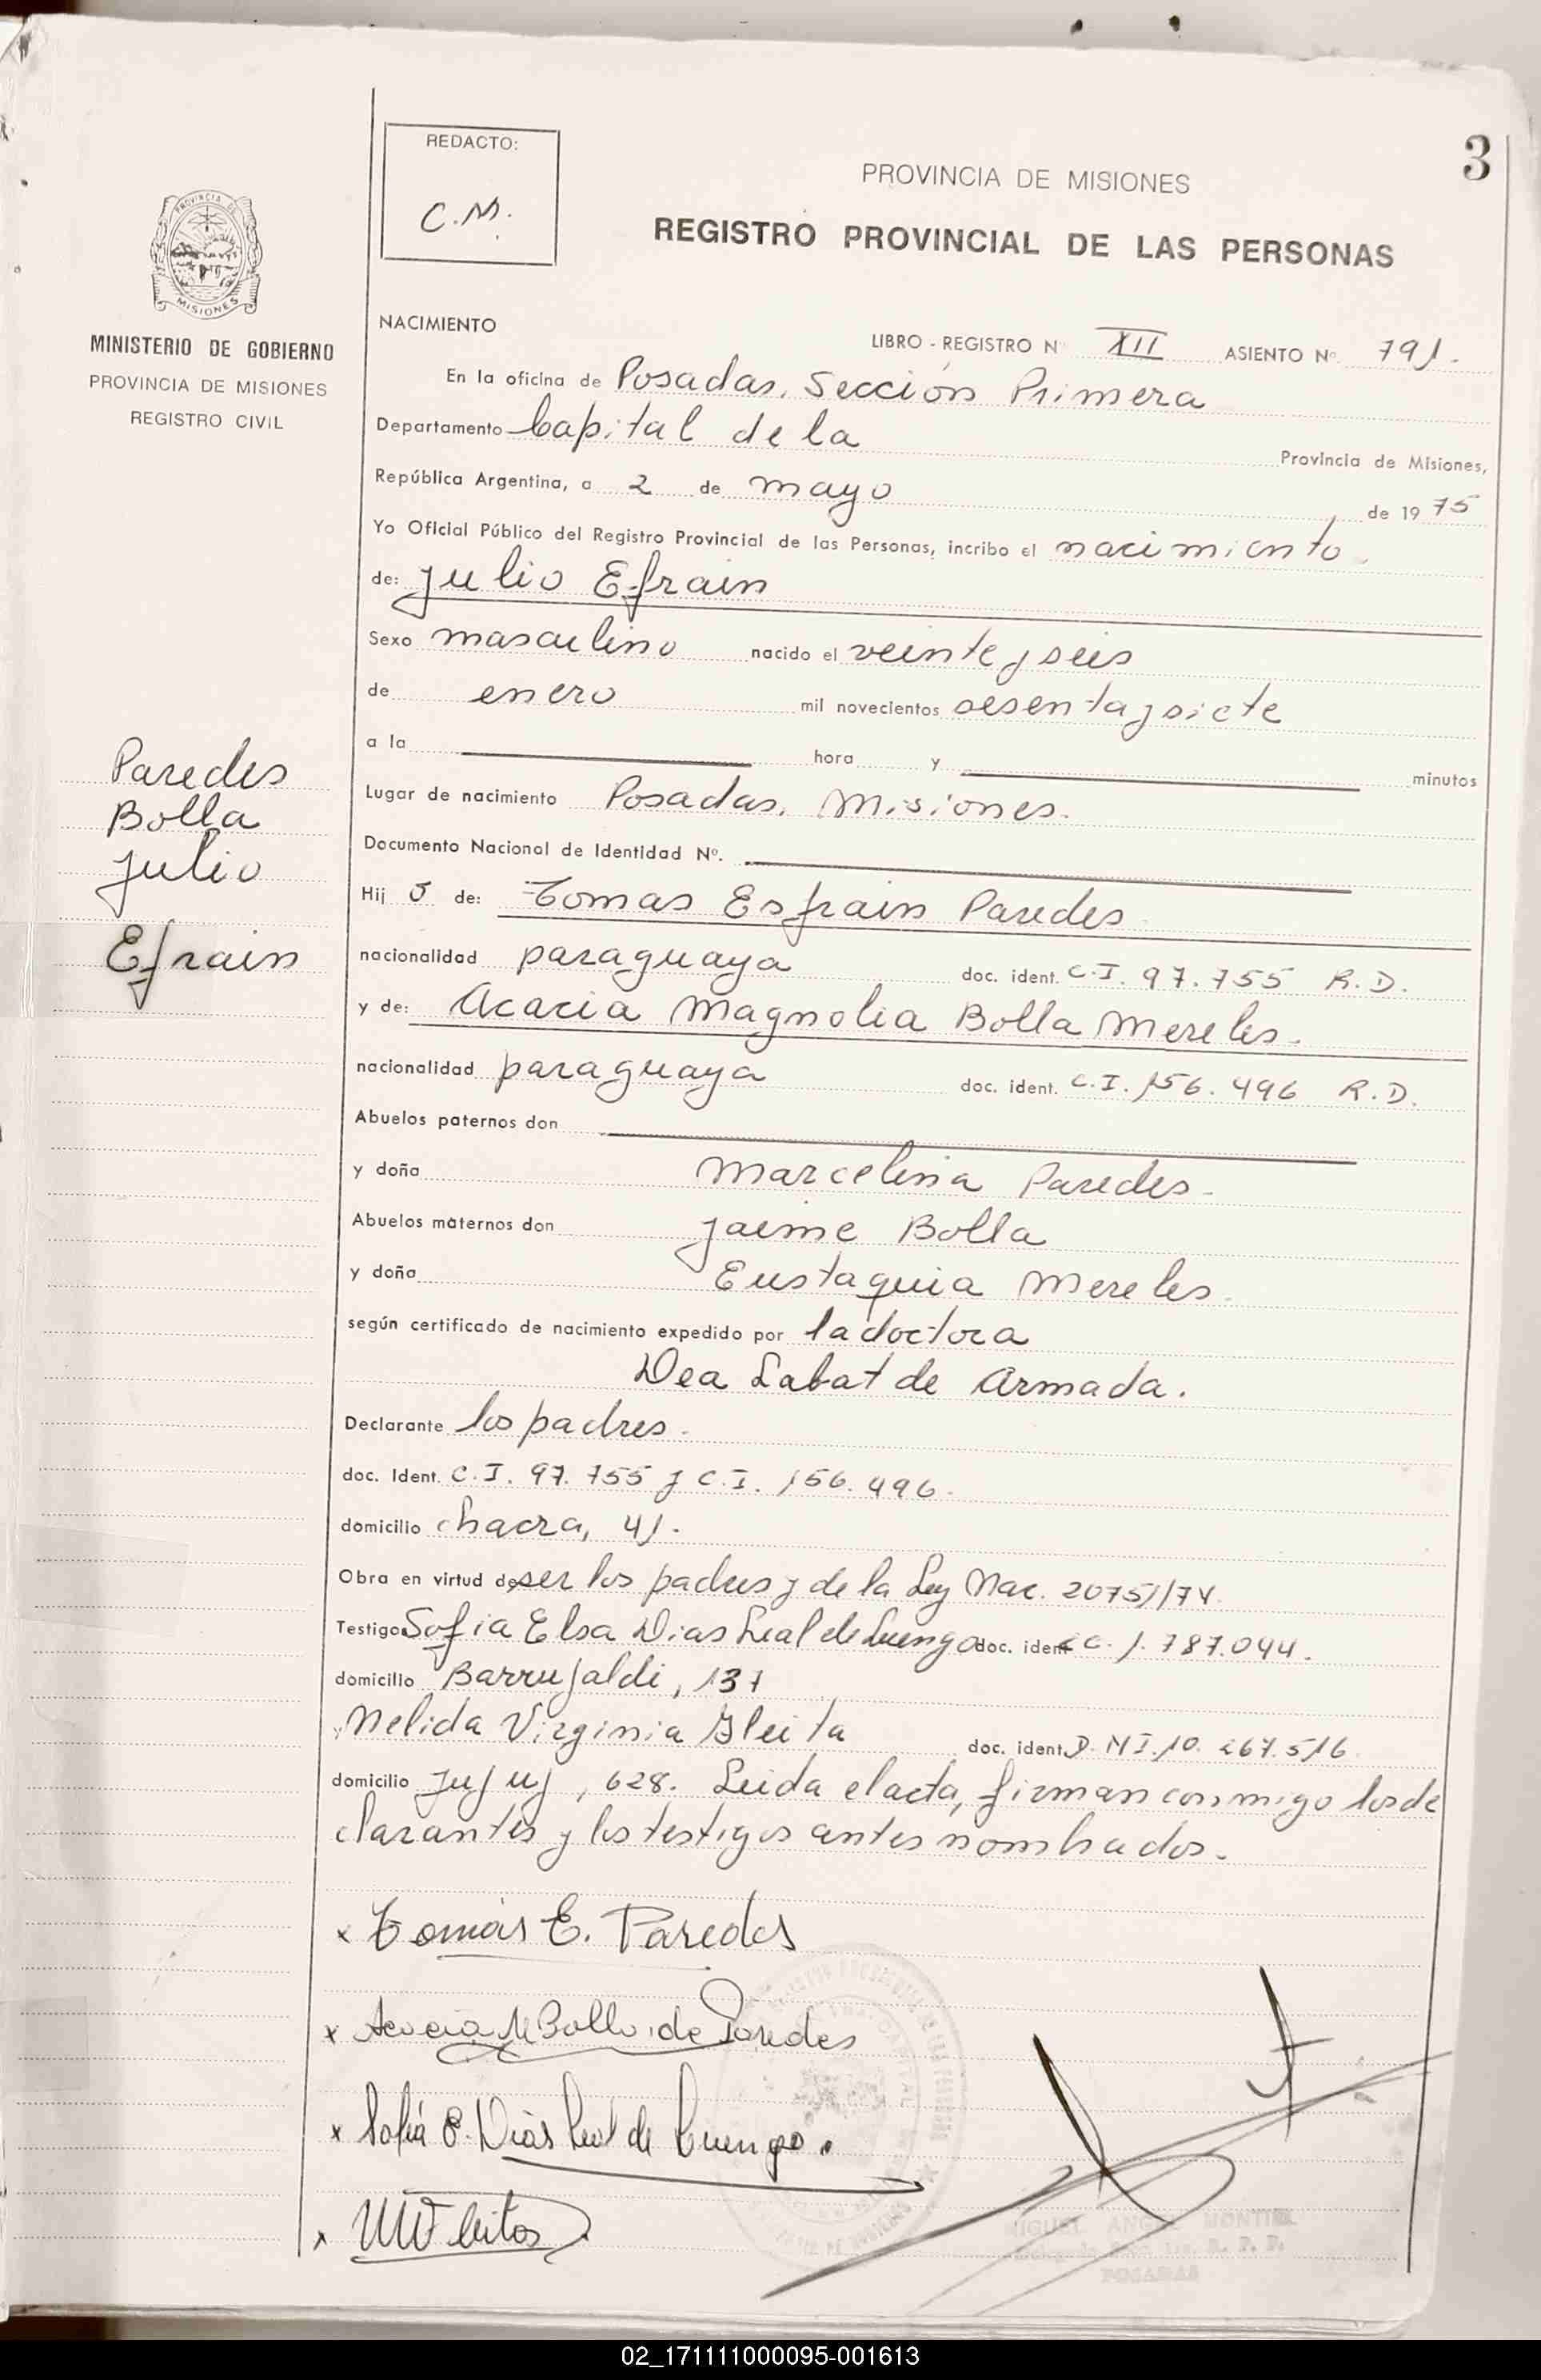 3
REDACTO:
C.M.
PROVINCIA DE MISIONES
REGISTRO PROVINCIAL DE LAS PERSONAS
PROVINCIA DE
MISIONES
MINISTERIO DE GOBIERNO
PROVINCIA DE MISIONES
REGISTRO CIVIL
NACIMIENTO
LIBRO - REGISTRO Nº XII ASIENTO Nº 791.
En la oficina de Posadas, Sección Primera
Departamento Capital de la Provincia de Misiones,
República Argentina, a 2 de mayo de 19 75
Yo Oficial Público del Registro Provincial de las Personas, incribo el nacimiento
de: Julio Efrain
Sexo masculino nacido el veinte y seis
de enero mil novecientos sesenta y siete
a la hora y minutos
Paredes
Bolla
Julio
Efrain
Lugar de nacimiento Posadas, Misiones.
Documento Nacional de Identidad Nº.
Hij o de: Tomas Esfrain Paredes
nacionalidad paraguaya doc. ident. C.I. 97.755 R.D.
y de: Acacia Magnolia Bolla Mereles.
nacionalidad paraguaya doc. ident. C.I. 156.496 R.D.
Abuelos paternos don
y doña Marcelina Paredes.
Abuelos maternos don Jaime Bolla
y doña Eustaquia Mereles.
según certificado de nacimiento expedido por la doctora
Dea Labat de Armada.
Declarante los padres.
doc. Ident. C.I. 97.755 y C.I. 156.496.
domicilio chacra, 41.
Obra en virtud de ser los padres y de la Ley Nac. 20751/74.
Testigos Sofia Elsa Dias Leal de Luengo doc. ident L.C. 1.787.044.
domicilio Barrufaldi, 137
y Nelida Virginia Gleita doc. ident. D.NI. 10.267.516
domicilio Jujuy, 628. Leida el acta, firman conmigo los de
clarantes y los testigos antes nombrados.
x Tomás E. Paredes
x Acacia M Bolla de Paredes
x Sofia E. Dias Leal de Luengo.
x
MIGUEL ANGEL MONTIEL
R. P. P.
POSADAS
02_171111000095-001613